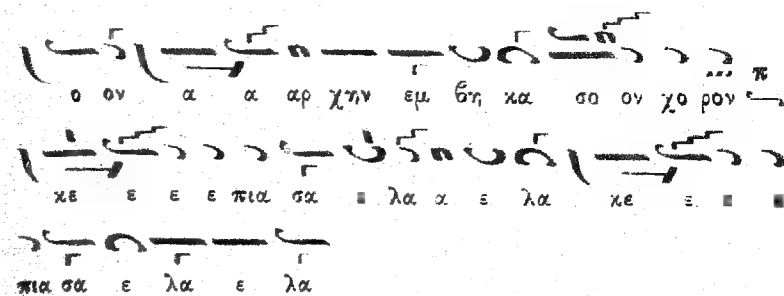 ο ον α α αρ χην εμ βη κα σο ον χο ρον π
κε ε ε ε πια σα ε λα α ε λα κε ε
πια σα ε λα ε λα